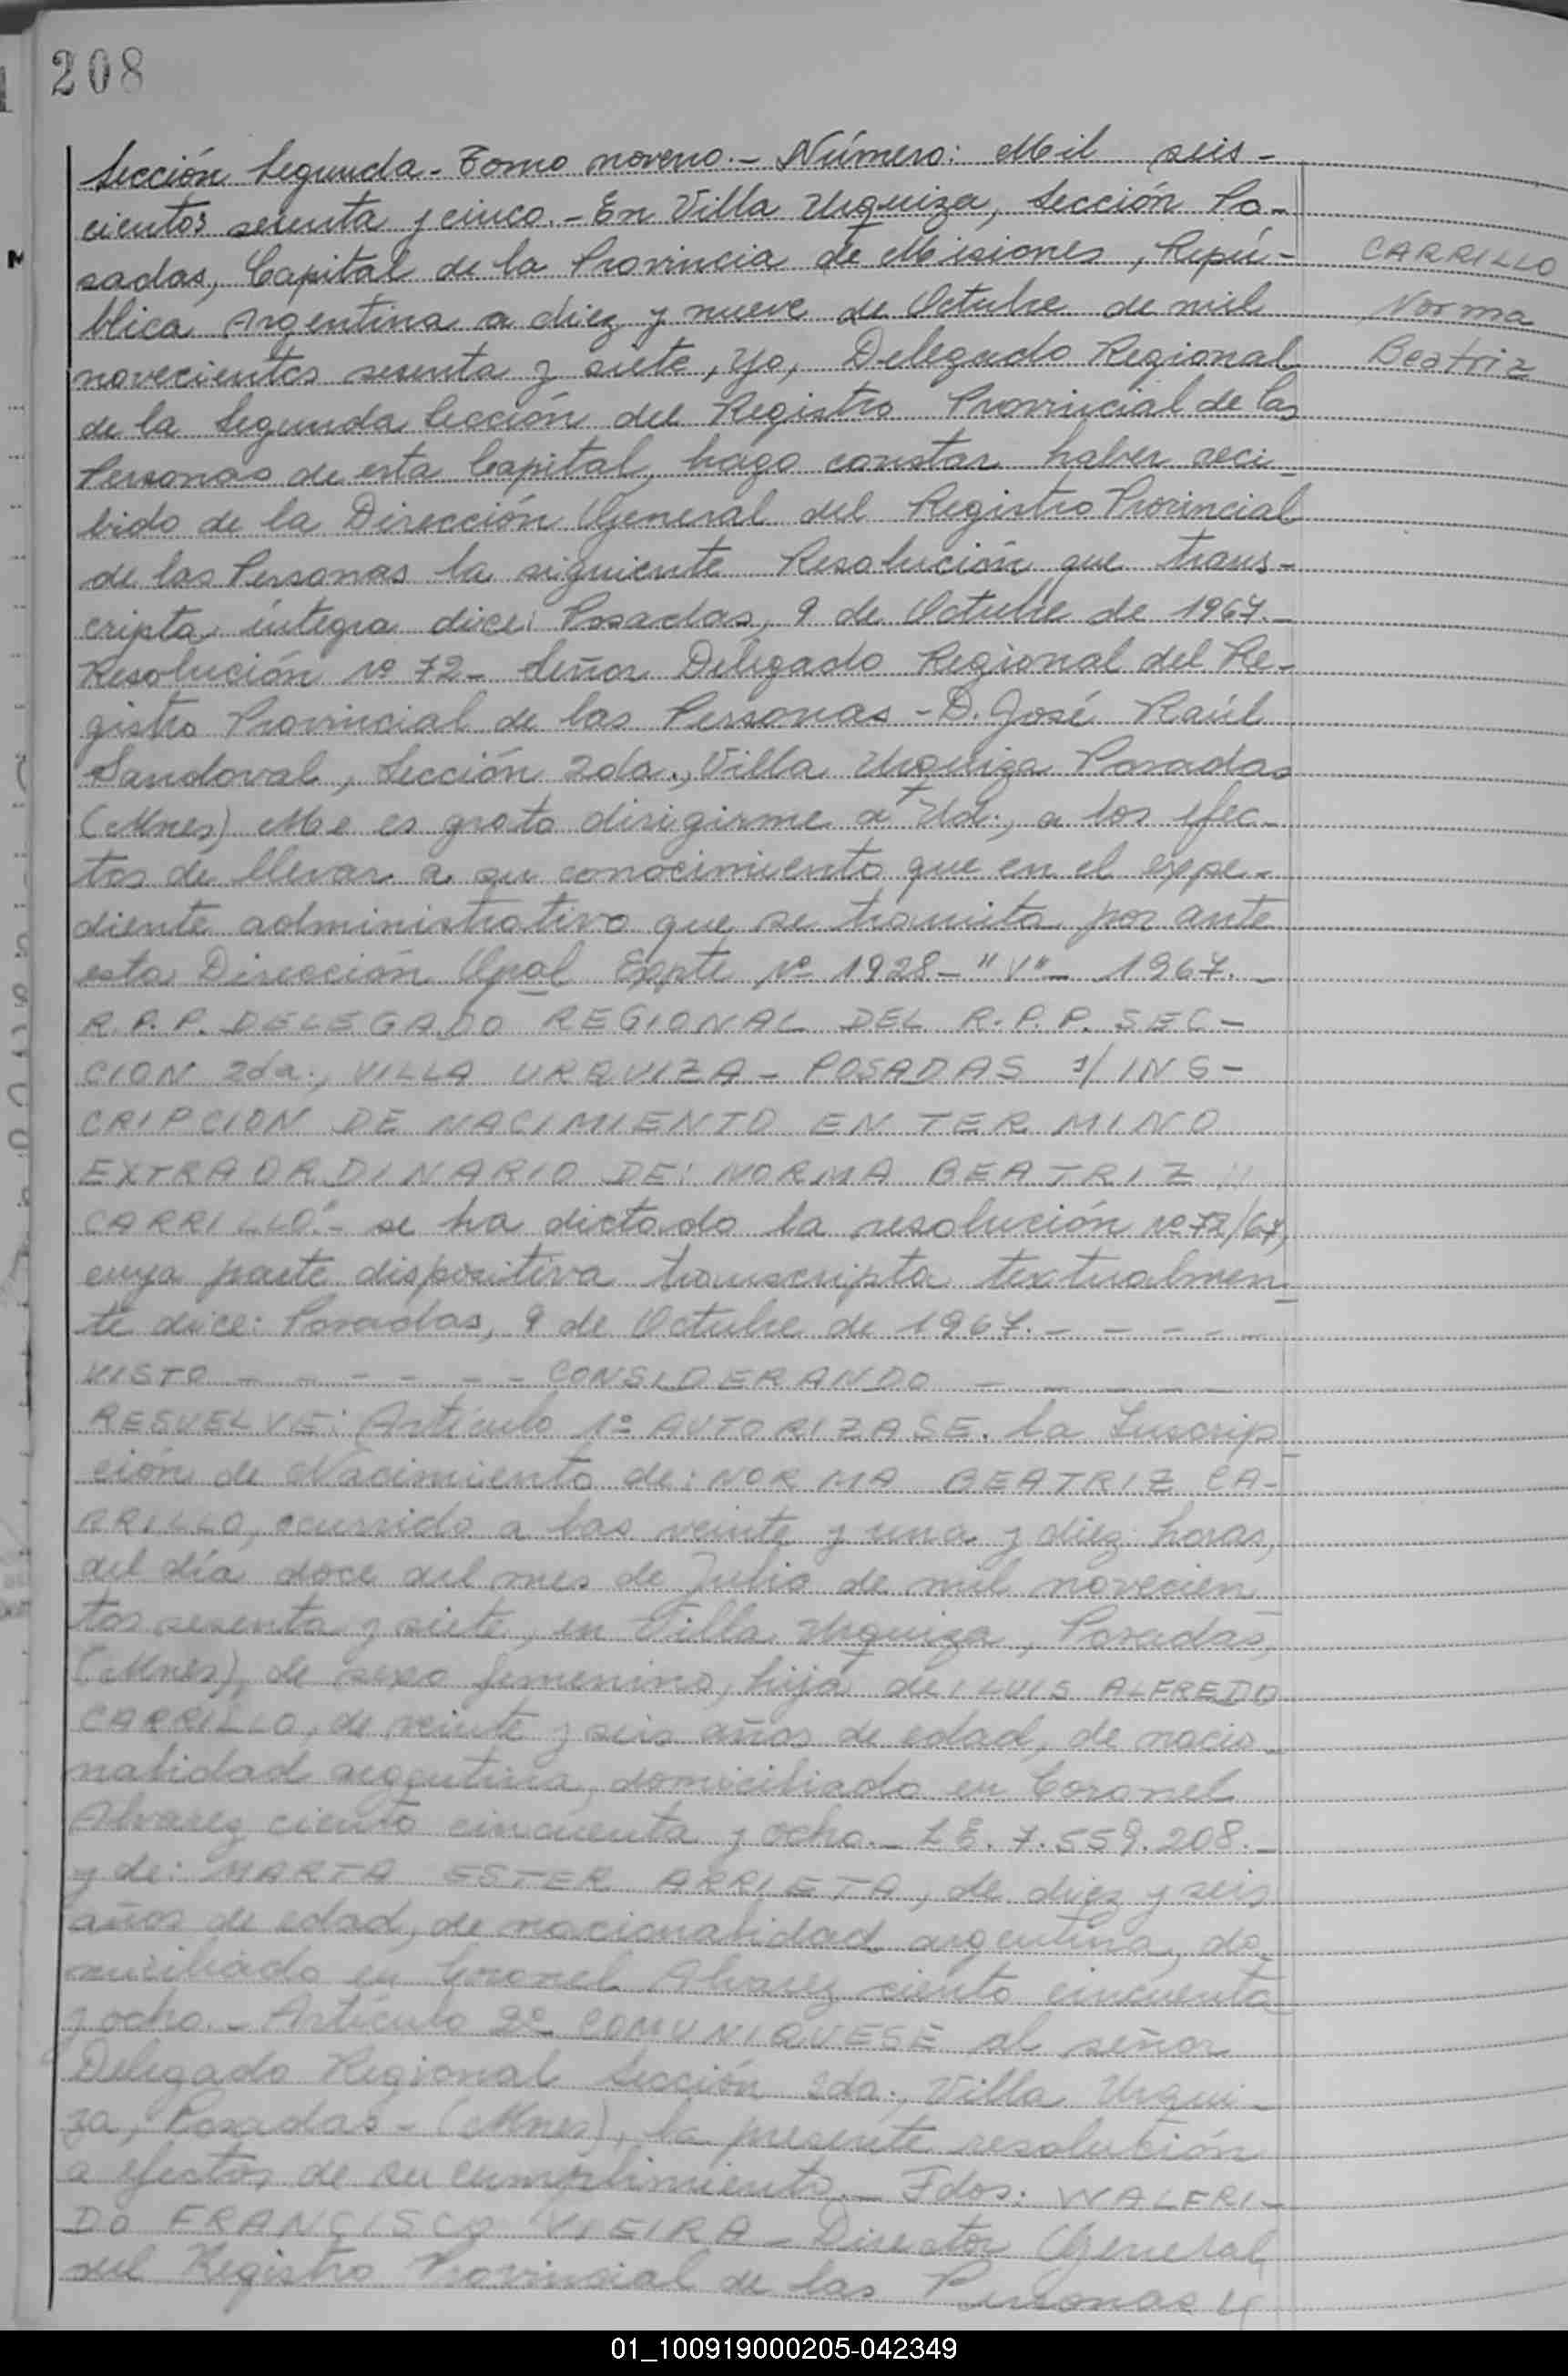 208
Sección Segunda - Tomo noveno. - Número: Mil seis-
cientos sesenta y cinco. - En Villa Urquiza, Sección Po-
sadas, Capital de la Provincia de Misiones, Repú-
blica Argentina a diez y nueve de Octubre de mil
novecientos sesenta y siete, yo, Delegado Regional
de la Segunda Sección del Registro Provincial de las
Personas de esta Capital, hago constar haber reci-
bido de la Dirección General del Registro Provincial
de las Personas la siguiente Resolución que trans-
cripta íntegra dice: Posadas, 9 de Octubre de 1967. -
Resolución nº 72 - Señor Delegado Regional del Re-
gistro Provincial de las Personas - D. José Raúl
Sandoval, Sección 2da., Villa Urquiza Posadas
(Mnes) Me es grato dirigirme a Ud., a los efec-
tos de llevar a su conocimiento que en el expe-
diente administrativo que se tramita por ante
esta Dirección Gral Expte Nº 1928 - "V" - 1967. -
R.P.P. DELEGADO REGIONAL DEL R.P.P. SEC-
CION 2da., VILLA URQUIZA - POSADAS s/ INS-
CRIPCION DE NACIMIENTO EN TERMINO
EXTRAORDINARIO DE: NORMA BEATRIZ
CARRILLO". - se ha dictado la resolución nº 72/67,
cuya parte dispositiva transcripta textualmen-
te dice: Posadas, 9 de Octubre de 1967. - - - - -
VISTO - - - - - - CONSIDERANDO - - - - -
RESUELVE: Artículo 1º AUTORIZASE. la Inscrip-
ción de Nacimiento de: NORMA BEATRIZ CA-
RRILLO, ocurrido a las veinte y una y diez horas,
del día doce del mes de Julio de mil novecien-
tos sesenta y siete, en Villa Urquiza, Posadas,
(Mnes), de sexo femenino, hija de: LUIS ALFREDO
CARRILLO, de veinte y seis años de edad, de nacio-
nalidad argentina, domiciliado en Coronel
Alvarez ciento cincuenta y ocho. - L.E. 7.559.208. -
y de: MARTA ESTER ARRIETA, de diez y seis
años de edad, de nacionalidad argentina, do-
miciliado en Coronel Alvarez ciento cincuenta
y ocho. - Artículo 2º COMUNIQUESE al señor
Delegado Regional Sección 2da., Villa Urqui-
za, Posadas - (Mnes), la presente resolución
a efectos de su cumplimiento. - Fdos: WALFRI-
DO FRANCISCO VIEIRA - Director General
del Registro Provincial de las Personas y
CARRILLO
Norma
Beatriz
01_100919000205-042349